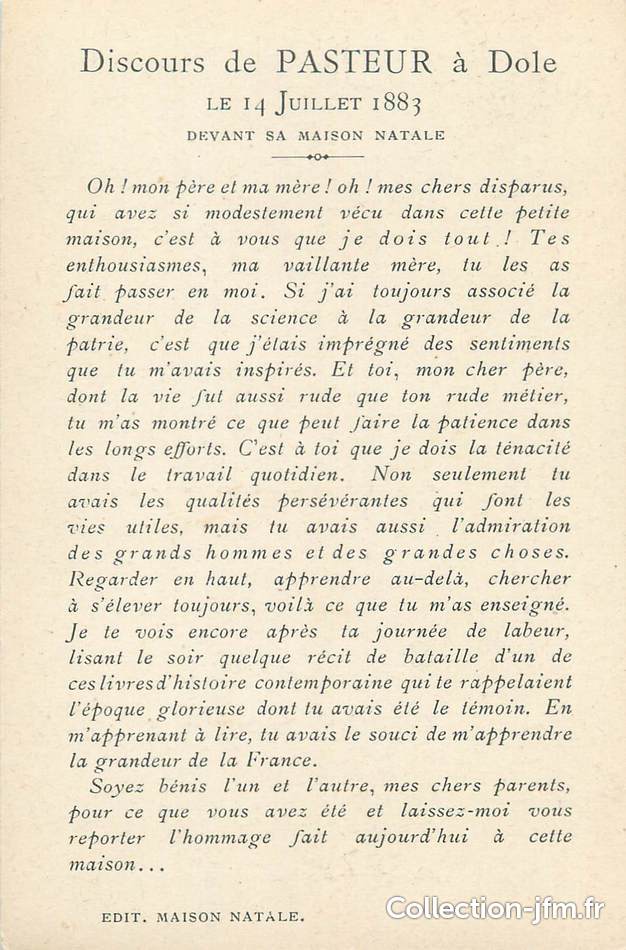 Discours de PASTEUR à Dole
LE 14 JUILLET 1883
DEVANT SA MAISON NATALE
Oh ! mon père et ma mère ! oh ! mes chers disparus,
qui avez si modestement vécu dans cette petite
maison, c'est à vous que je dois tout ! Tes
enthousiasmes, ma vaillante mère, tu les as
fait passer en moi. Si j'ai toujours associé la
grandeur de la science à la grandeur de la
patrie, c'est que j'étais imprégné des sentiments
que tu m'avais inspirés. Et toi, mon cher père,
dont la vie fut aussi rude que ton rude métier,
tu m'as montré ce que peut faire la patience dans
les longs efforts. C'est à toi que je dois la ténacité
dans le travail quotidien. Non seulement tu
avais les qualités persévérantes qui font les
vies utiles, mais tu avais aussi l'admiration
des grands hommes et des grandes choses.
Regarder en haut, apprendre au-delà, chercher
à s'élever toujours, voilà ce que tu m'as enseigné.
Je te vois encore après ta journée de labeur,
lisant le soir quelque récit de bataille d'un de
ces livres d'histoire contemporaine qui te rappelaient
l'époque glorieuse dont tu avais été le témoin. En
m'apprenant à lire, tu avais le souci de m'apprendre
la grandeur de la France.
Soyez bénis l'un et l'autre, mes chers parents,
pour ce que vous avez été et laissez-moi vous
reporter l'hommage fait aujourd'hui à cette
maison...
EDIT. MAISON NATALE.
Collection-jfm.fr